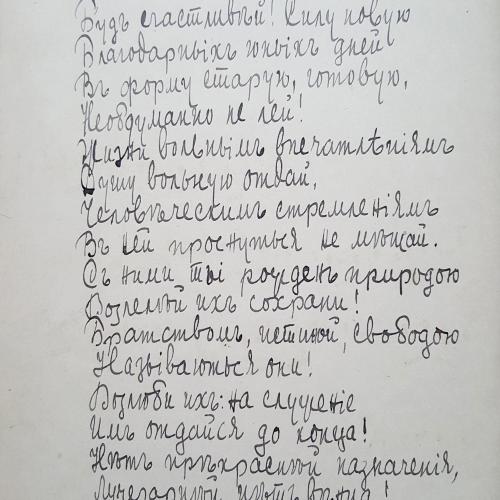 Будь счастливѣй! Силу новую
Благодарныхъ юныхъ дней
Въ форму старую, готовую,
Необдуманно не лей!
Жизни вольнымъ впечатлѣніямъ
Душу вольную отдай,
Человѣческимъ стремленіямъ
Въ ней проснуться не мѣшай.
Съ ними ты рожденъ природою
Возлелѣй ихъ сохрани!
Братствомъ, истиной, свободою
Называються они!
Возлюби ихъ: на служеніе
Имъ отдайся до конца!
Нѣтъ прѣкраснѣй назначенія,
Лучезарнѣй нѣтъ вѣнца!